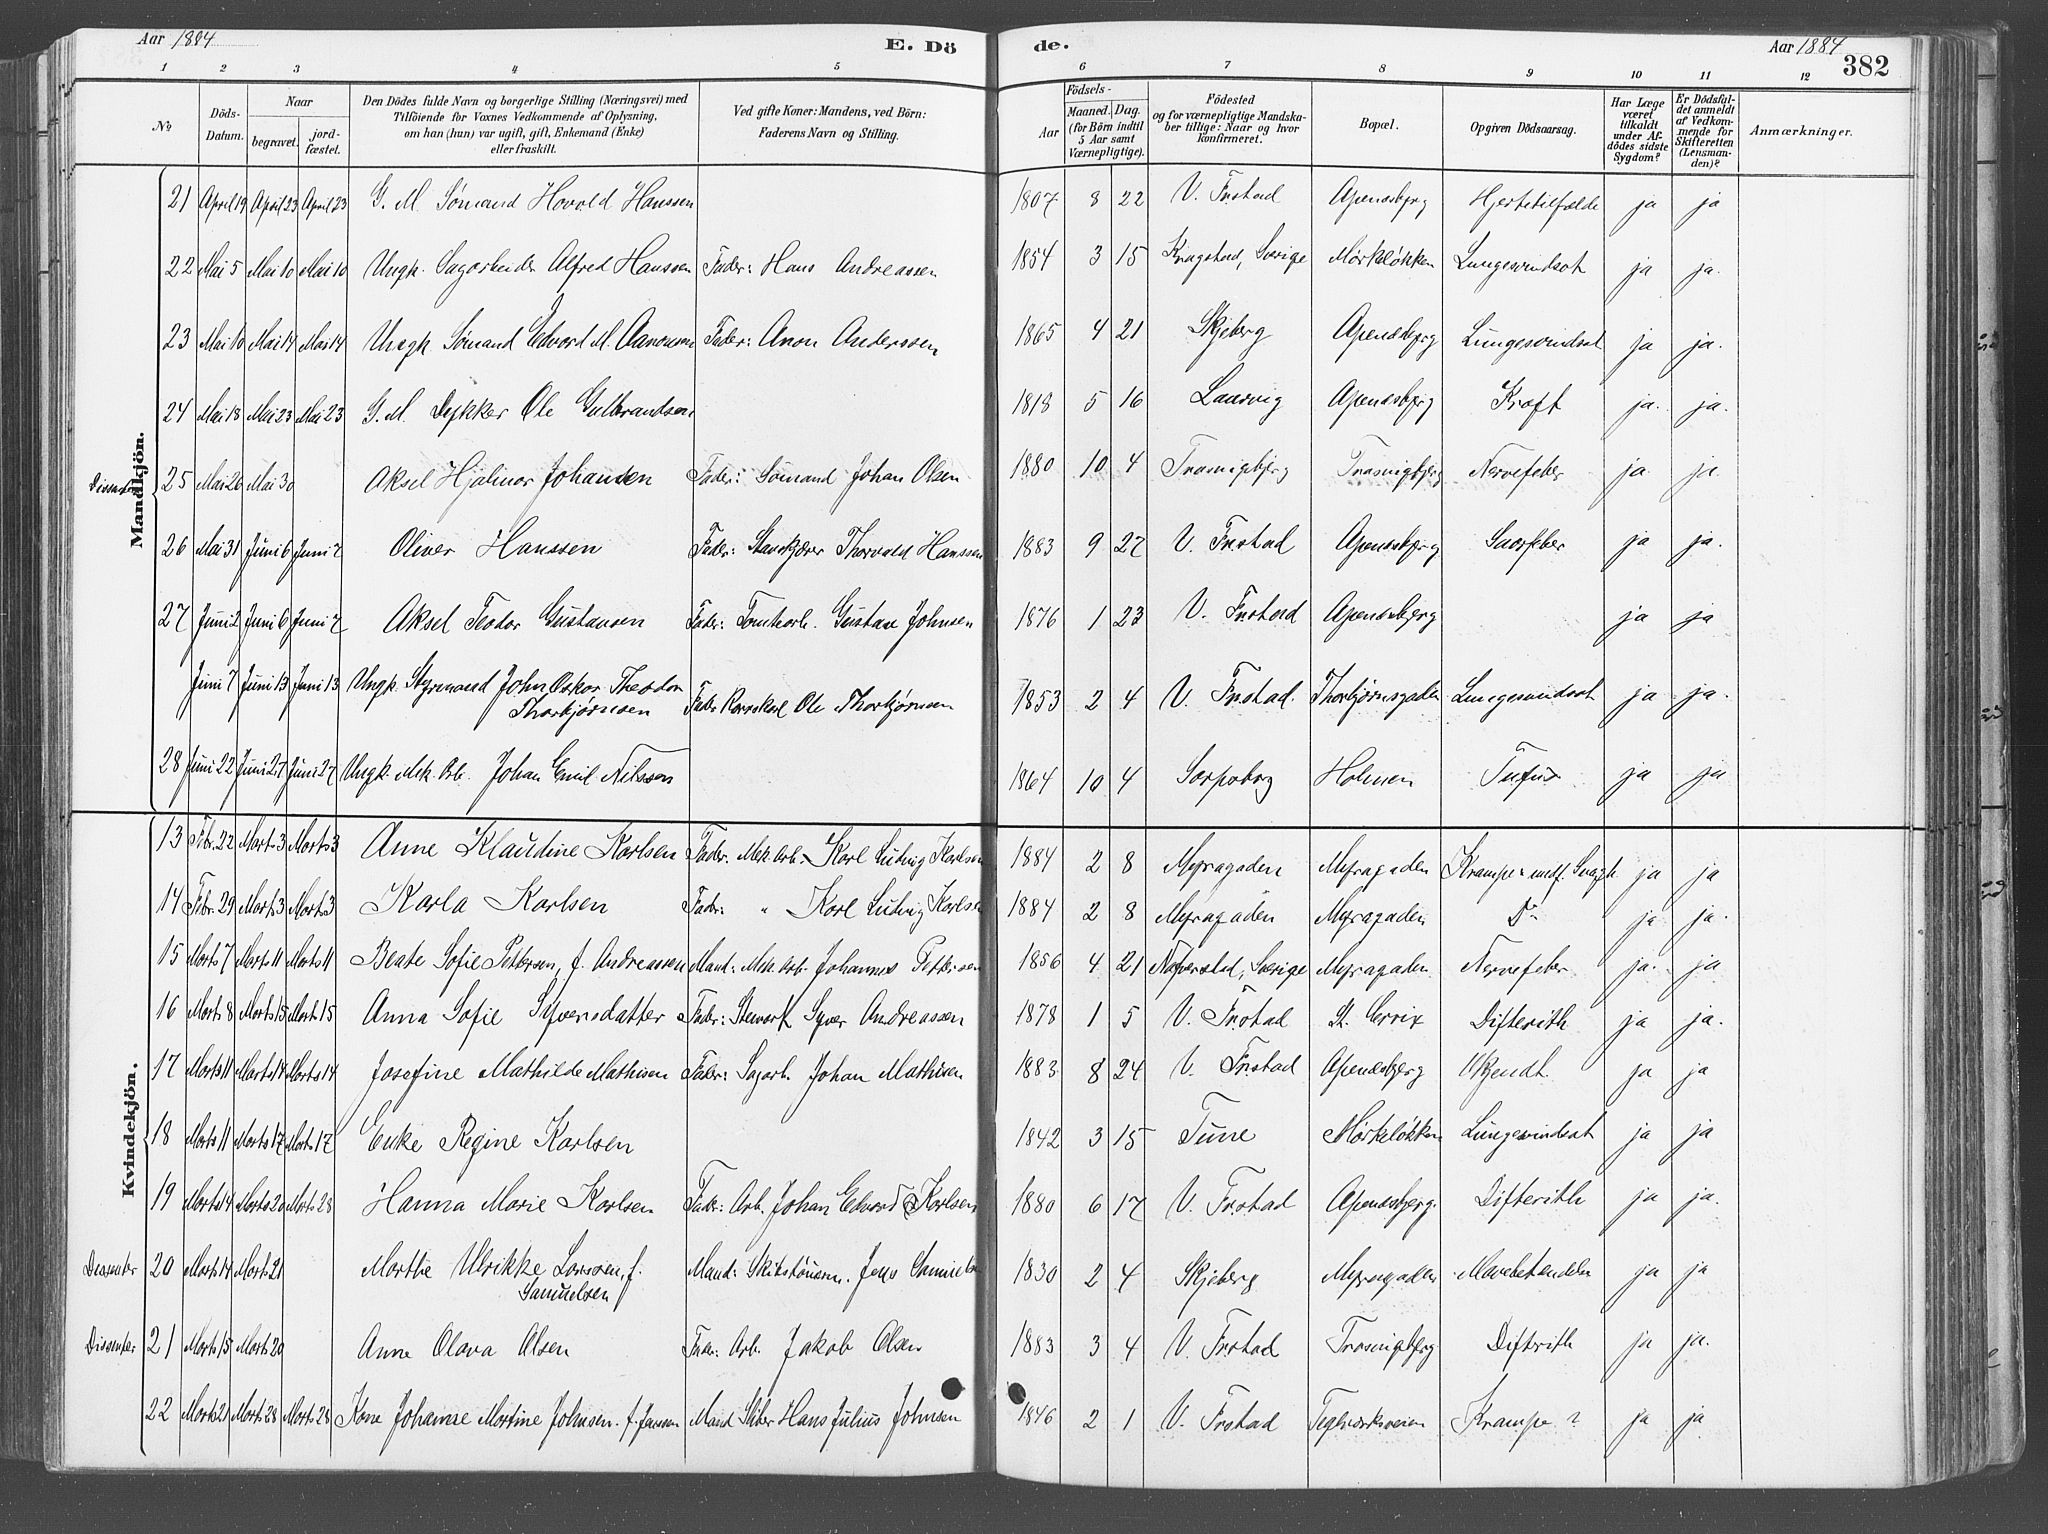 Aar 1884 E. Dö de. Aar 1884 382
1 2 3 4 5 6 7 8 9 10 11 12
No. Döds-Datum. Naar begravet. jordfæstet. Den Dödes fulde Navn og borgerlige Stilling (Næringsvei) med Tilföiende for Voxnes Vedkommende af Oplysning, om han (hun) var ugift, gift, Enkemand (Enke) eller fraskilt. Ved gifte Koner: Mandens, ved Börn: Faderens Navn og Stilling. Födsels- Aar Maaned. Dag. (for Börn indtil 5 Aar samt Værnepligtige). Födested og for værnepligtige Mandskaber tillige: Naar og hvor konfirmeret. Bopæl. Opgiven Dödsaarsag. Har Læge været tilkaldt under Afdödes sidste Sygdom? Er Dödsfaldet anmeldt af Vedkommende for Skifteretten (Lensmanden)? Anmærkninger.
Mandkjön.
21 April 19 April 23 April 23 G. M. Sømand Hovold Hanssen 1807 8 22 V. Frstad Apenesbjerg Hjertetilfælde ja ja
22 Mai 5 Mai 10 Mai 10 Ungk. Sagarbeider Alfred Hanssen Fader: Hans Andreassen 1854 3 15 Krogstad, Sverige Mørkeløkken Lungesvindsot ja ja.
23 Mai 10 Mai 14 Mai 14 Ungk Sømand Edvard M. Aanonsen Fader: Anon Anderssen 1865 4 21 Skjeberg Apenesbjerg Lungesvindsot ja ja.
24 Mai 18 Mai 23 Mai 23 G. M. Dykker Ole Gulbrandsen 1818 5 16 Laurvig Apenesbjerg Kræft ja. ja.
Dissenter 25 Mai 26 Mai 30 Aksel Hjalmar Johansen Fader: Sømand Johan Olsen 1880 10 4 Trosvigbjerg Trosvigbjerg Nervefeber ja ja.
26 Mai 31 Juni 6 Juni 7 Oliver Hanssen Fader: Thorvald Hanssen 1883 9 27 V. Frstad Apenesbjerg ja ja.
27 Juni 2 Juni 6 Juni 7 Aksel Teodor Gustavsen Fader: Tomtearb. Gustav Johnsen 1876 1 23 V. Frstad Apenesbjerg ja ja
Juni 7 Juni 13 Juni 13 Ungk. Styrmand John Oskar Theodor Thorbjørnsen Fader Ole Thorbjørnsen 1853 2 4 V. Frstad. Thorbjørnsgaden Lungesvindsot ja ja.
28 Juni 22 Juni 27 Juni 27 Ungk. Mek. Arb. Johan Emil Nilssen 1864 10 4 Sarpsborg Holmen Tyfus ja ja
Kvindekjön.
13 Febr. 22 Marts 3 Marts 3 Anne Klaudine Karlsen Fader: Mek. Arb. Karl Ludvig Karlsen 1884 2 8 Myragaden Myragaden Krampe medf. Svagh. ja ja
14 Febr. 29 Marts 3 Marts 3 Karla Karlsen Fader: " Karl Ludvig Karlsen 1884 2 8 Myragaden Myragaden Do ja ja.
15 Marts 7 Marts 11 Marts 11 Beate Sofie Pettersen, f. Andreassen Mand: Mek. Arb. Johannes Pettersen 1856 4 21 Naverstad, Sverige Myragaden Nervefeber ja. ja
16 Marts 8 Marts 15 Marts 15 Anna Sofie Syversdatter Fader: Stewart Syver Andreassen 1878 1 5 V. Frstad St. Croix Difterith ja ja.
17 Marts 11 Marts 14 Marts 14 Josefine Mathilde Mathisen Fader: Sagarb. Johan Mathisen 1883 8 24 V. Frstad Apenesbjerg Ukjendt. ja ja
18 Marts 11 Marts 17 Marts 17 Enke Regine Karlsen 1842 3 15 Tune Mørkeløkken Lungesvindsot ja ja
19 Marts 14 Marts 20 Marts 28 Hanna Marie Karlsen Fader: Arb. Johan Edvard Karlsen 1880 6 17 V. Frstad Apenesbjerg. Difterith ja ja.
Dissenter 20 Marts 14 Marts 21 Marthe Ulrikke Larssen, f. Samuelsen Mand: Skibstømm. Jens Samuelsen 1830 2 4 Skjeberg Myragaden Mavebetændelse ja ja
Dissenter 21 Marts 15 Marts 20 Anne Olava Olsen Fader: Arb. Jakob Olsen 1883 3 4 V. Frstad Trosvigbjerg Difterith ja ja.
22 Marts 21 Marts 28 Marts 28 Kone Johanne Martine Johnsen. f. Janssen Mand Hans Julius Johnsen 1846 2 1 V. Frstad Teglværksveien Krampe? ja ja